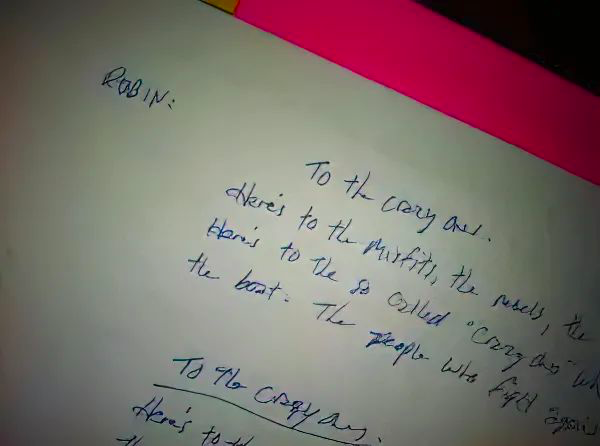 ROBIN:
To the crazy ones.
Here's to the Misfits, the rebels, the
Here's to the so called "Crazy ones" wh
the boat. The people who fight agains
To the Crazy ones.
Here's to th
the